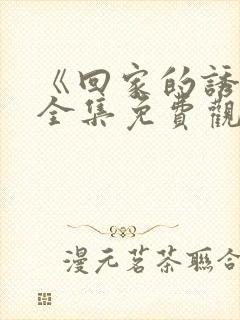 《回家的誘
全集免費觀
漫元茗茶聯合